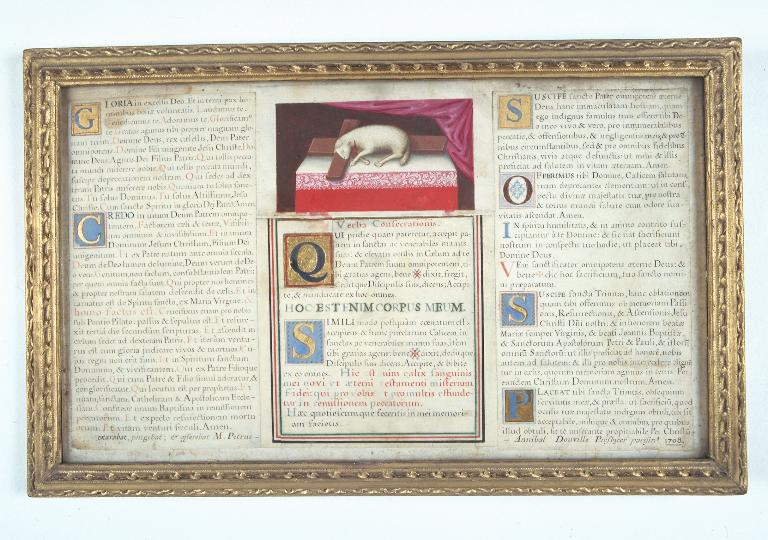 GLORIA in excelsis Deo. Et in terra pax ho-
minibus bonæ voluntatis. Laudamus te.
Benedicimus te. Adoramus te. Glorificam'
te. Gratias agimus tibi propter magnam glo-
riam tuam. Domine Deus, rex cælestis, Deus Pater
omnipotens. Domine Fili unigenite Jesu Christe. Do-
mine Deus, Agnus Dei, Filius Patris. Qui tollis pecca-
ta mundi miserere nobis. Qui tollis peccata mundi,
suscipe deprecationem nostram. Qui sedes ad dex-
teram Patris miserere nobis. Quoniam tu solus sanc-
tus. Tu solus Dominus. Tu solus Altissimus, Jesu
Christe. Cum Sancto Spiritu in gloria Dei Patris. Amen.
CREDO in unum Deum Patrem omnipo-
tentem, Factorem cæli & terræ, Visibili-
um omnium & invisibilium. Et in unum
Dominum Jesum Christum, Filium Dei
unigenitum. Et ex Patre natum ante omnia sæcula.
Deum de Deo, lumen de lumine, Deum verum de De-
o vero. Genitum, non factum, consubstantialem Patri:
per quem omnia facta sunt. Qui propter nos homines
& propter nostram salutem descendit de cælis. Et in-
carnatus est de Spiritu sancto, ex Maria Virgine, &
homo factus est. Crucifixus etiam pro nobis:
sub Pontio Pilato: passus & sepultus est. Et resurre-
xit tertia die secundum scripturas. Et ascendit in
cælum sedet ad dexteram Patris. Et iterum ventu-
rus est cum gloria judicare vivos & mortuos. Cu-
jus regni non erit finis. Et in Spiritum sanctum,
Dominum, & vivificantem. Qui ex Patre Filioque
procedit. Qui cum Patre & Filio simul adoratur, &
conglorificatur. Qui locutus est per prophetas. Et
unam, sanctam, Catholicam & Apostolicam Eccle-
siam. Confiteor unum Baptisma in remissionem
peccatorum. Et expecto resurrectionem mortu-
orum. Et vitam venturi sæculi. Amen.
exarabat, pingebat; & offerebat M. Petrus
Verba Consecrationis.
QUI pridie quam pateretur, accepit pa-
nem in sanctas ac venerabiles manus
suas, & elevatis oculis in Cælum ad te
Deum Patrem suum omnipotentem, ti-
bi gratias agens, bene dixit, fregit,
deditque Discipulis suis, dicens: Accipi-
te, & manducate ex hoc omnes.
HOC EST ENIM CORPUS MEUM.
SIMILI modo postquam cœnatum est,
accipiens & hunc præclarum Calicem in
sanctas ac venerabiles manus suas, item
tibi gratias agens: bene dixit, deditque
Discipulis suis, dicens: Accipite, & bibite
ex eo omnes. Hic est enim calix sanguinis
mei novi et æterni testamenti: misterium
Fidei: qui pro vobis et pro multis effunde-
tur in remissionem peccatorum.
Hæc quotiescumque feceritis in mei memori-
am facietis.
SUSCIPE sancte Pater omnipotens æterne
Deus, hanc immaculatam hostiam, quam
ego indignus famulus tuus offero tibi De-
o meo vivo & vero, pro innumerabilibus
peccatis, & offensionibus, & negligentiis meis, & pro
omnibus circumstantibus, sed & pro omnibus fidelibus
Christianis, vivis atque defunctis: ut mihi & illis
proficiat ad salutem in vitam æternam. Amen.
OFFERIMUS tibi Domine, Calicem salutaris,
tuam deprecantes clementiam: ut in cons-
pectu divinæ majestatis tuæ, pro nostra,
& totius mundi salute cum odore sua-
vitatis ascendat. Amen.
IN spiritu humilitatis, & in animo contrito sus-
cipiamur à te Domine: & sic fiat sacrificium
nostrum in conspectu tuo hodie, ut placeat tibi,
Domine Deus.
VENI sanctificator omnipotens æterne Deus: &
benedic hoc sacrificium, tuo sancto nomi-
ni præparatum.
SUSCIPE sancta Trinitas, hanc oblationem
quam tibi offerimus ob memoriam Passi-
onis, Resurrectionis, & Ascensionis Jesu
Christi Dñi nostri: & in honorem beatæ
Mariæ semper Virginis, & beati Joannis Baptistæ,
& Sanctorum Apostolorum Petri & Pauli, & istorũ &
omniũ Sanctorũ: ut illis proficiat ad honorẽ, nobis
autem ad salutem: & illi pro nobis intercedere dignen-
tur in cælis, quorum memoriam agimus in terris. Per
eundem Christum Dominum nostrum. Amen.
PLACEAT tibi sancta Trinitas, obsequium
servitutis meæ, & præsta: ut sacrificiũ, quod
oculis tuæ majestatis indignus obtuli, tibi sit
acceptabile, mihique & omnibus, pro quibus
illud obtuli, sit te miserante propitiabile. Per Christũ
Annibal Douville Presbyter parisin.' 1708.